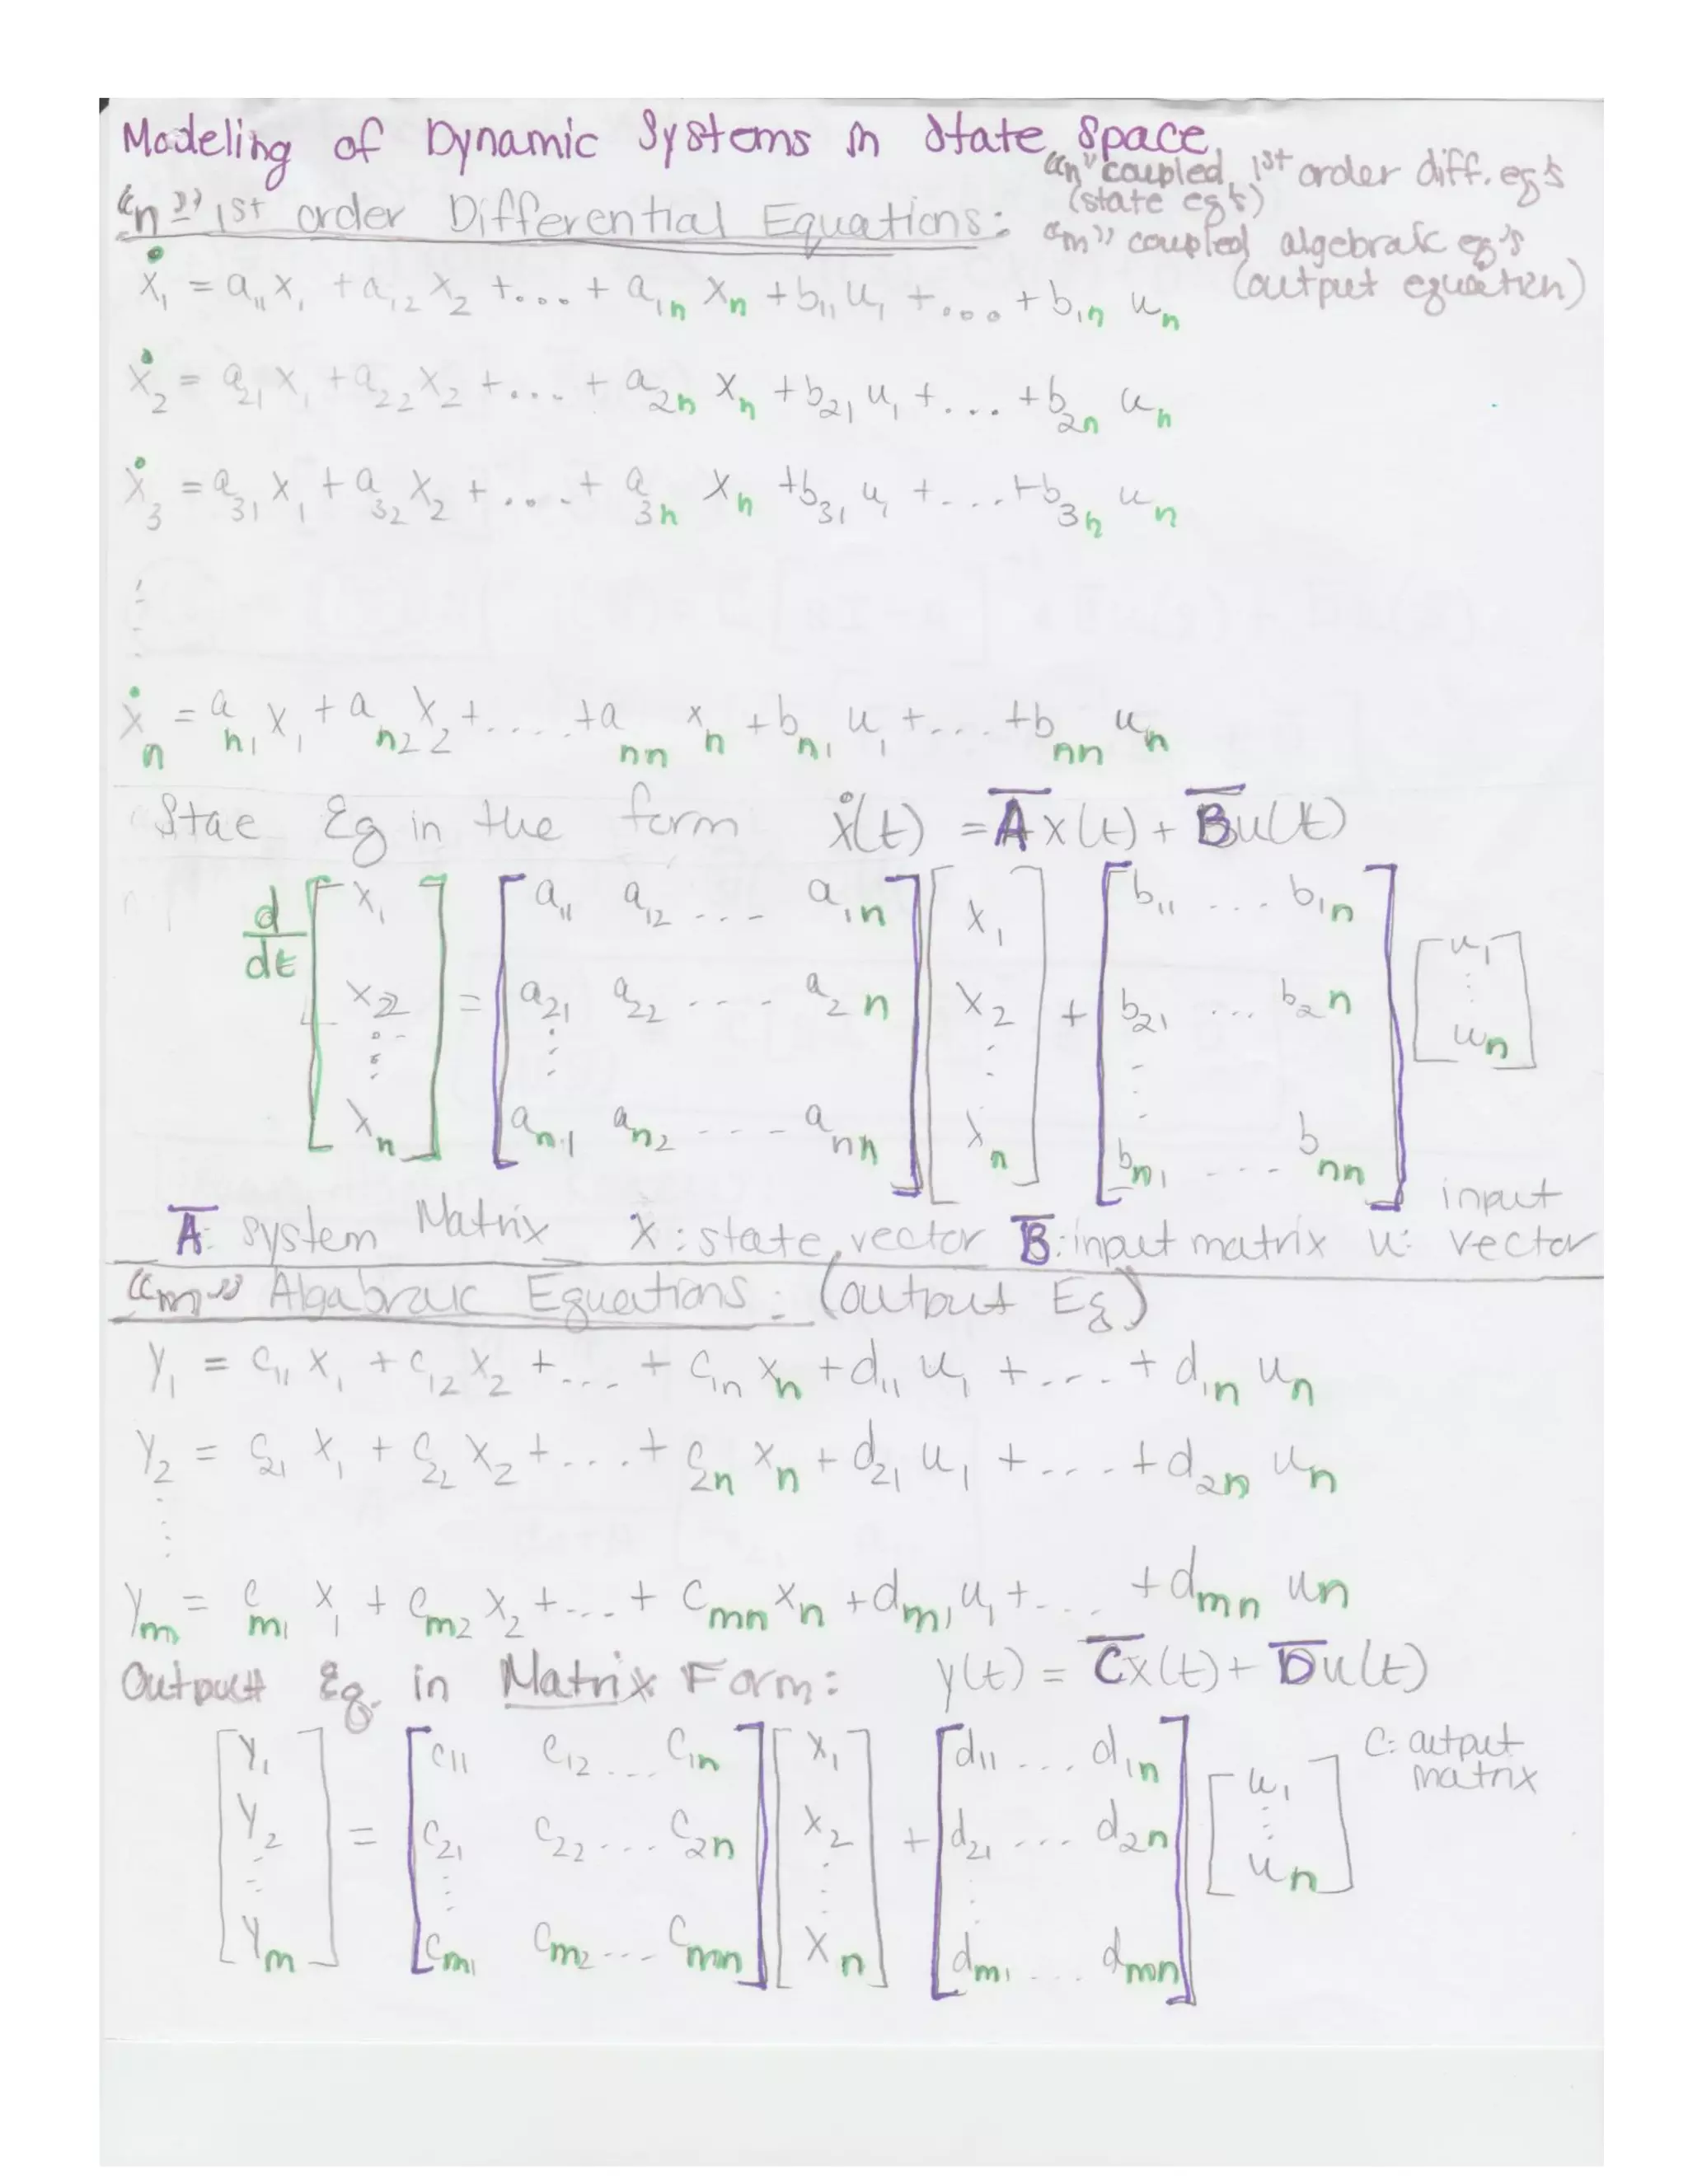 Modeling of Dynamic Systems in State Space
"n" coupled 1st order diff. eq's
(state eq's)
"n" 1st order Differential Equations:
"m" coupled algebraic eq's
(output equation)
ẋ₁ = a₁₁ x₁ + a₁₂ x₂ +.... + a₁ₙ xₙ + b₁₁ u₁ +.... + b₁ₙ uₙ
ẋ₂ = a₂₁ x₁ + a₂₂ x₂ +.... + a₂ₙ xₙ + b₂₁ u₁ +.... + b₂ₙ uₙ
ẋ₃ = a₃₁ x₁ + a₃₂ x₂ +.... + a₃ₙ xₙ + b₃₁ u₁ +.... + b₃ₙ uₙ
⋮
ẋₙ = aₙ₁ x₁ + aₙ₂ x₂ +.... + aₙₙ xₙ + bₙ₁ u₁ +.... + bₙₙ uₙ
Stae Eq in the form ẋ(t) = A̅ x(t) + B̅ u(t)
d/dt [x₁ x₂ ⋮ xₙ] = [a₁₁ a₁₂ .... a₁ₙ a₂₁ a₂₂ .... a₂ₙ ⋮ aₙ₁ aₙ₂ .... aₙₙ] [x₁ x₂ ⋮ xₙ] + [b₁₁ ... b₁ₙ b₂₁ ... b₂ₙ ⋮ bₙ₁ ... bₙₙ] [u₁ ⋮ uₙ]
A̅: system Matrix X: state vector B̅: input matrix u: input vector
"m" Algabraic Equations: (output Eq)
y₁ = c₁₁ x₁ + c₁₂ x₂ +.... + c₁ₙ xₙ + d₁₁ u₁ +.... + d₁ₙ uₙ
y₂ = c₂₁ x₁ + c₂₂ x₂ +.... + c₂ₙ xₙ + d₂₁ u₁ +.... + d₂ₙ uₙ
⋮
yₘ = cₘ₁ x₁ + cₘ₂ x₂ +.... + cₘₙ xₙ + dₘ₁ u₁ +.... + dₘₙ uₙ
Output Eq. in Matrix Form: y(t) = C̅x(t) + D̅u(t)
[y₁ y₂ ⋮ yₘ] = [c₁₁ c₁₂ ... c₁ₙ c₂₁ c₂₂ ... c₂ₙ ⋮ cₘ₁ cₘ₂ ... cₘₙ] [x₁ x₂ ⋮ xₙ] + [d₁₁ ... d₁ₙ d₂₁ ... d₂ₙ ⋮ dₘ₁ ... dₘₙ] [u₁ ⋮ uₙ]
C: output
matrix